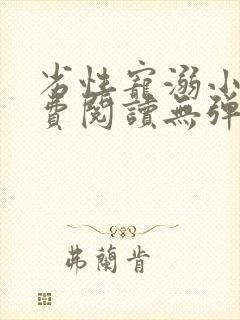 劣性寵溺小
費閱讀無彈
弗蘭肯